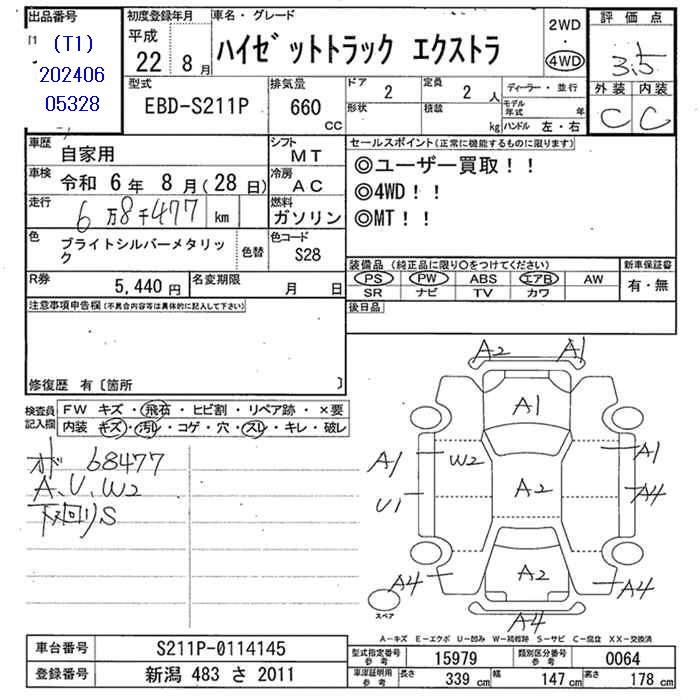 出品番号
(T1)
202406
05328
初度登録年月
平成
22 8月
車名・グレード
ハイゼットトラック エクストラ
2WD
・
4WD
評価点
3.5
外装 内装
C C
型式
EBD-S211P
排気量
660
CC
ドア
2
定員
2 人
形状
積載
kg
ディーラー・並行
モデル年式 年
ハンドル 左・右
車歴
自家用
シフト
MT
車検
令和 6年 8月(28日)
冷房
AC
走行
6万8千477 km
燃料
ガソリン
色
ブライトシルバーメタリック
色替
色コード
S28
R券
5,440円
名変期限
月 日
セールスポイント(正常に機能するものに限ります)
◎ユーザー買取!!
◎4WD!!
◎MT!!
装備品(純正品に限り○をつけてください)
新車保証書
PS PW ABS エアB AW
SR ナビ TV カワ
有・無
後日品
注意事項申告欄(不具合内容等は具体的に記入して下さい)
修復歴 有〔箇所 〕
検査員記入欄
FW キズ・飛石・ヒビ割・リペア跡・×要
内装 キズ・汚レ・コゲ・穴・スレ・キレ・破レ
68477
A、U、W2
下回りS
A2 A1
A1
A1 W2 A1
A2
U1 A4
A4 A2 A4
A4
スペア
A-キズ E-エクボ U-凹み W-補修跡 S-サビ C-腐立 XX-交換済
車台番号
S211P-0114145
登録番号
新潟 483 さ 2011
型式指定番号
参考
15979
類別区分番号
参考
0064
車庫証明用
参考
長さ 339 cm
幅 147 cm
高さ 178 cm